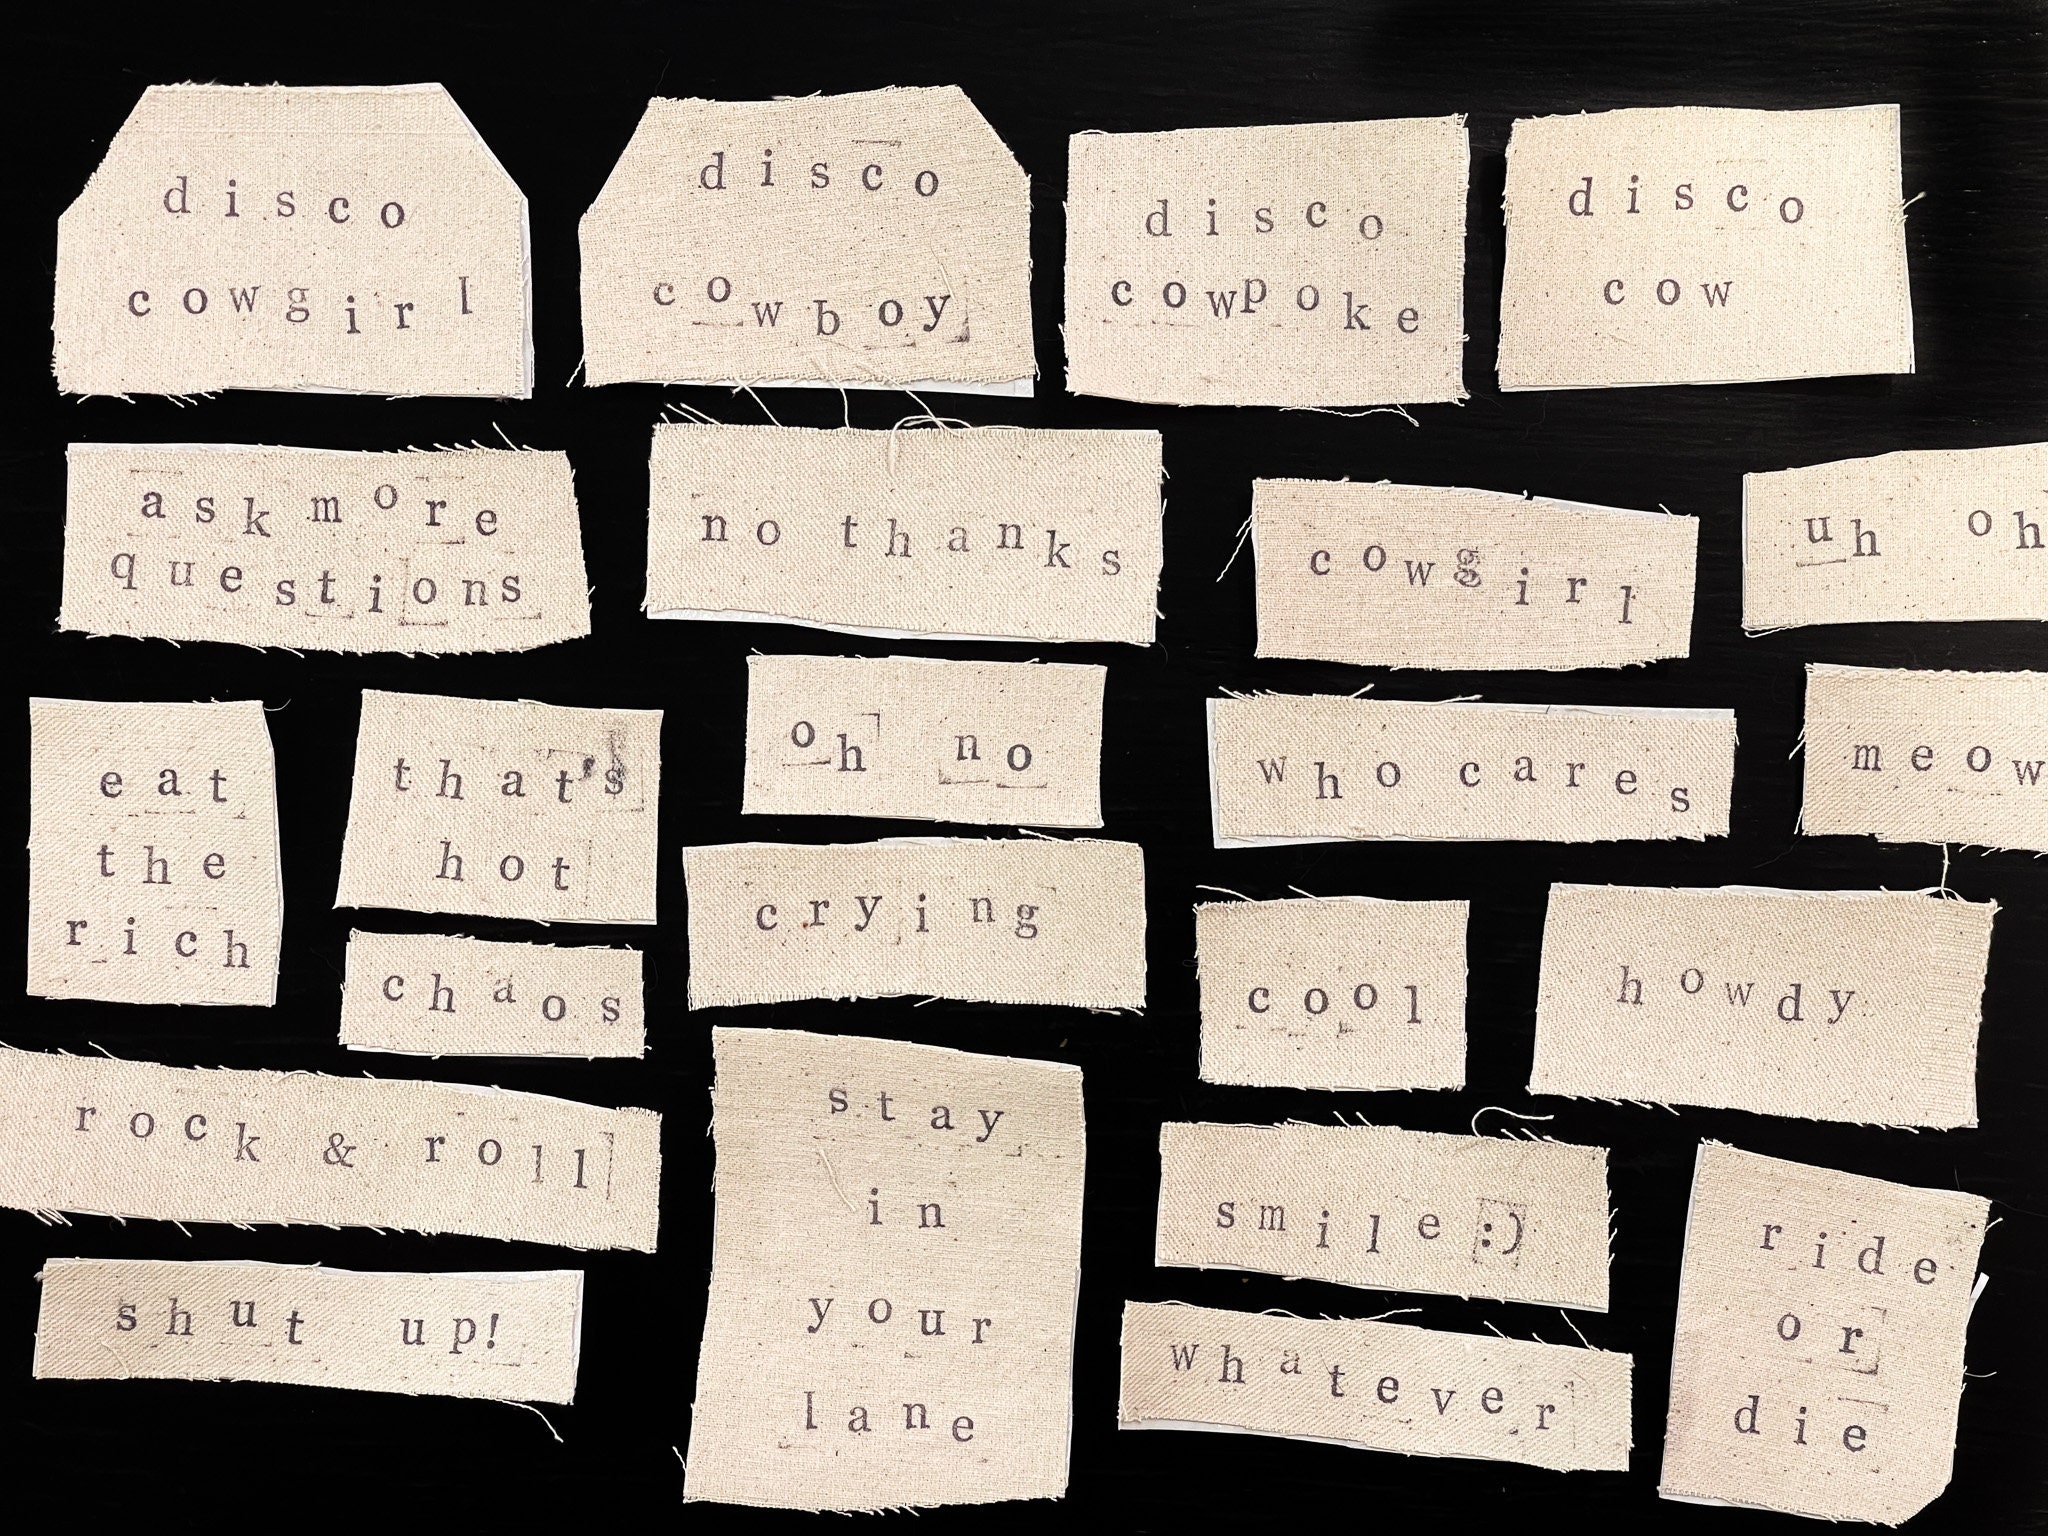 disco
cowgirl
disco
cowboy
disco
cowpoke
disco
cow
ask more
questions
no thanks
cowgirl
uh oh
eat
the
rich
that's
hot
oh no
who cares
meow
chaos
crying
cool
howdy
rock & roll
shut up!
stay
in
your
lane
smile :)
whatever
ride
or
die